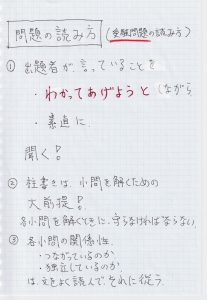 問題の読み方(受験問題の読み方)
① 出題者が、言っていることを
・わかってあげようと しながら
・素直に
聞く!
② 柱書きは、小問を解くための
大前提!
各小問を解くときに、守らなければならない
③ 各小問の関係性
・つながっているのか
・独立しているのか
は、文をよく読んで、それに従う。